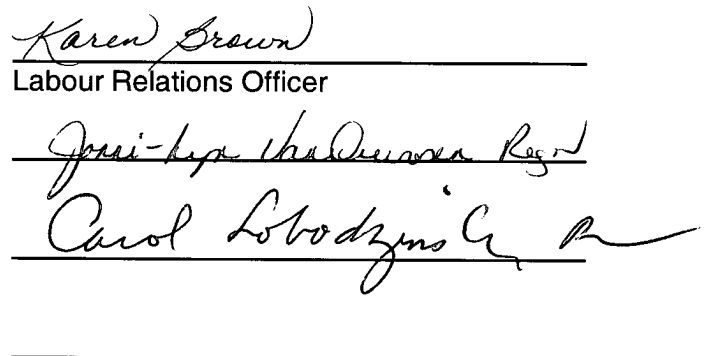 Karen Brown
Labour Relations Officer
VanDeursen RegN
Carol Lobodzinski